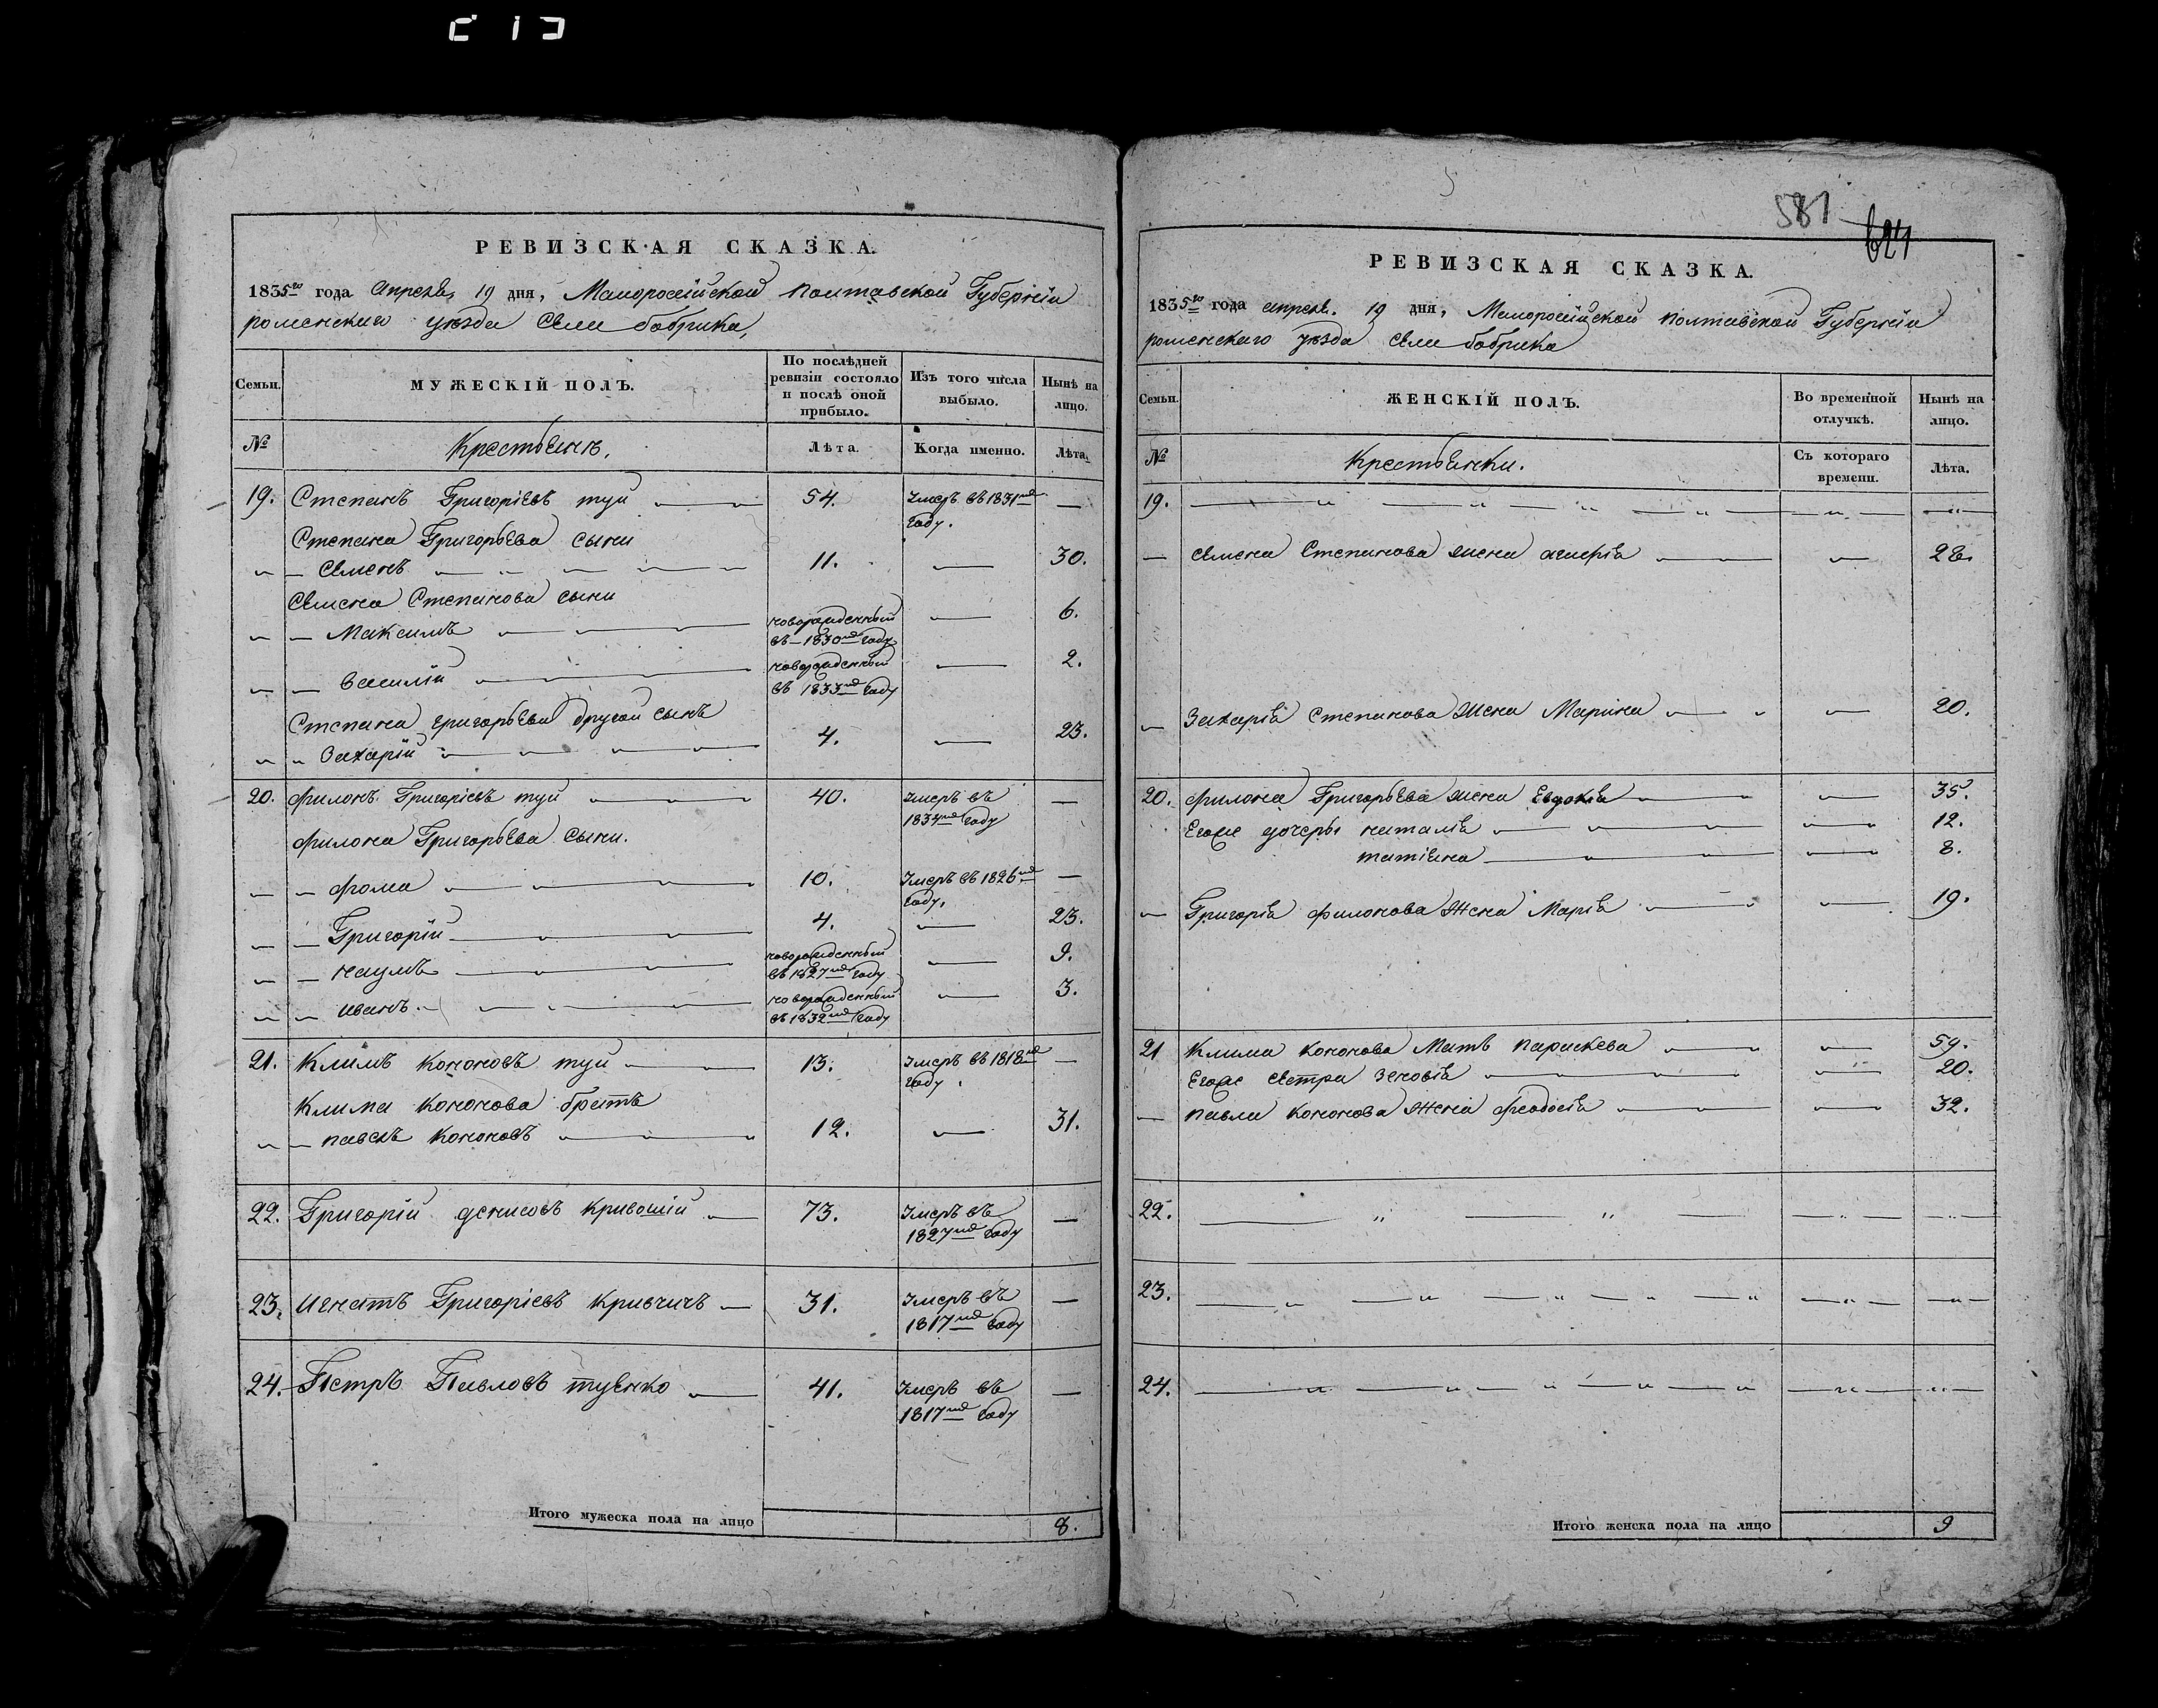 581
624
РЕВИЗСКАЯ СКАЗКА.
1835го года Апреля, 19 дня, Малоросійской Полтавской Губерніи
роменского уезда Села бобрика,
Семьи.
МУЖЕСКІЙ ПОЛЪ.
По послѣдней ревизіи состояло и послѣ оной прибыло.
Изъ того числа выбыло.
Нынѣ на лицо.
№
Крестьянъ,
Лѣта.
Когда именно.
Лѣта.
19. Степанъ Григоріевъ туй 54. Умеръ въ 1831мъ году. —
Степана Григорьева сыны
— Семенъ 11. — 30.
Семена Степанова сыны
— Максимъ новорожденный въ — 1830мъ году — 6.
— Василій новорожденный въ 1833мъ году — 2.
Степана григорьева другой сынъ
" Захарій 4. — 23.
20. Филонъ Григоріевъ туй 40. Умеръ въ 1834мъ году —
Филона Григорьева сыны.
— Фома 10. Умеръ въ 1826мъ году. —
— Григорій 4. — 23.
— Наумъ новорожденный въ 1827мъ году — 9.
— иванъ новорожденный въ 1832мъ году — 3.
21. Климъ Кононовъ туй 13. Умеръ въ 1818мъ году. —
Клима Кононова братъ
— павелъ Кононовъ 12. — 31.
22. Григорій денисовъ Кривошій 73. Умеръ въ 1827мъ году —
23. Игнатъ Григоріевъ Кривчичъ 31. Умеръ въ 1817мъ году —
24. Петръ Павловъ туенко 41. Умеръ въ 1817мъ году —
Итого мужеска пола на лицо 8.
РЕВИЗСКАЯ СКАЗКА.
1835го года апреля. 19 дня, Малоросійской полтавской Губерніи
роменского уезда Села бобрика
Семьи.
ЖЕНСКІЙ ПОЛЪ.
Во временной отлучкѣ.
Нынѣ на лицо.
№
Крестьянки.
Съ котораго времени.
Лѣта.
19.
— Семена Степанова жена агафія — 28.
— Захарія Степанова жена Марина — 20.
20. Филона Григорьева жена Евдокія — 35.
Егоже дочеры наталія — 12.
татіяна — 8.
— Григорія филонова Жена Марія — 19.
21 Клима Кононова Мать параскева — 59.
Егоже Сестра Зеновія — 20.
— павла Кононова Жена Феодосія — 32.
22.
23.
24.
Итого женска пола на лицо 9